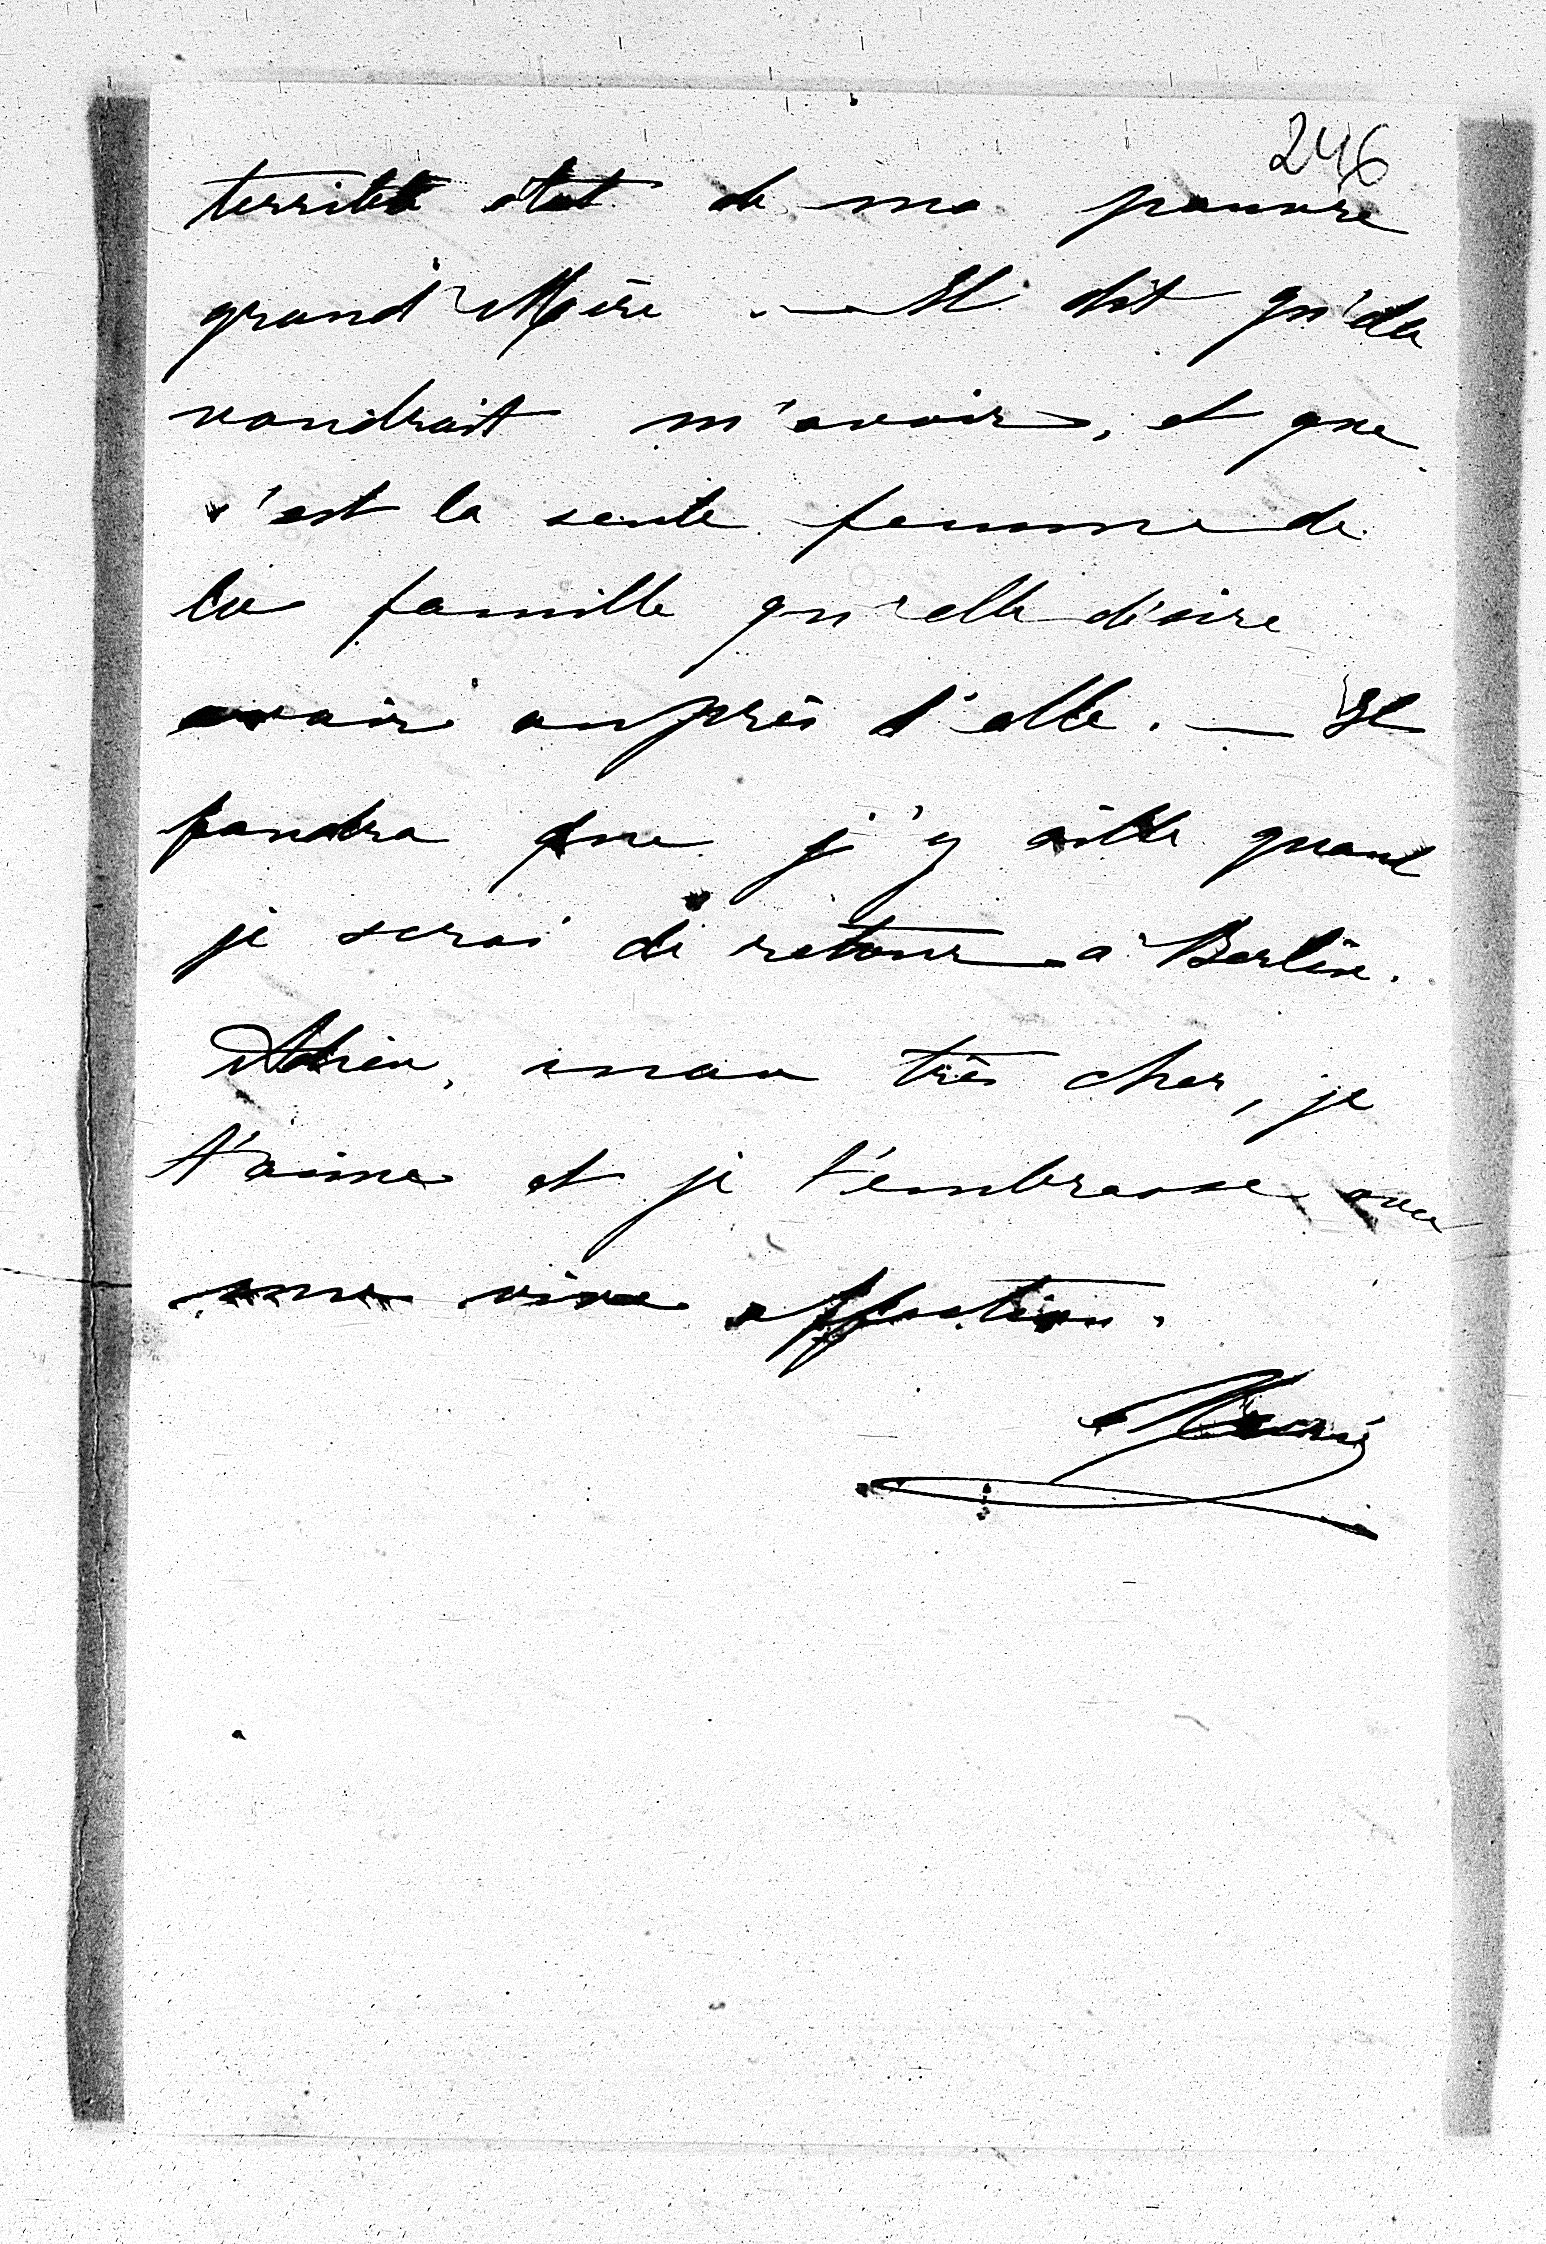 246
terrible état de ma pauvre
grand'Mère. — Il dit qu'elle
voudrait m'avoir, et que
c'est la seule femme de
la famille qu'elle désire
avoir auprès d'elle. — Il
faudra que j'y aille quand
je serai de retour à Berlin.
Adieu, mon très cher, je
t'aime et je t'embrasse avec
une vive affection.